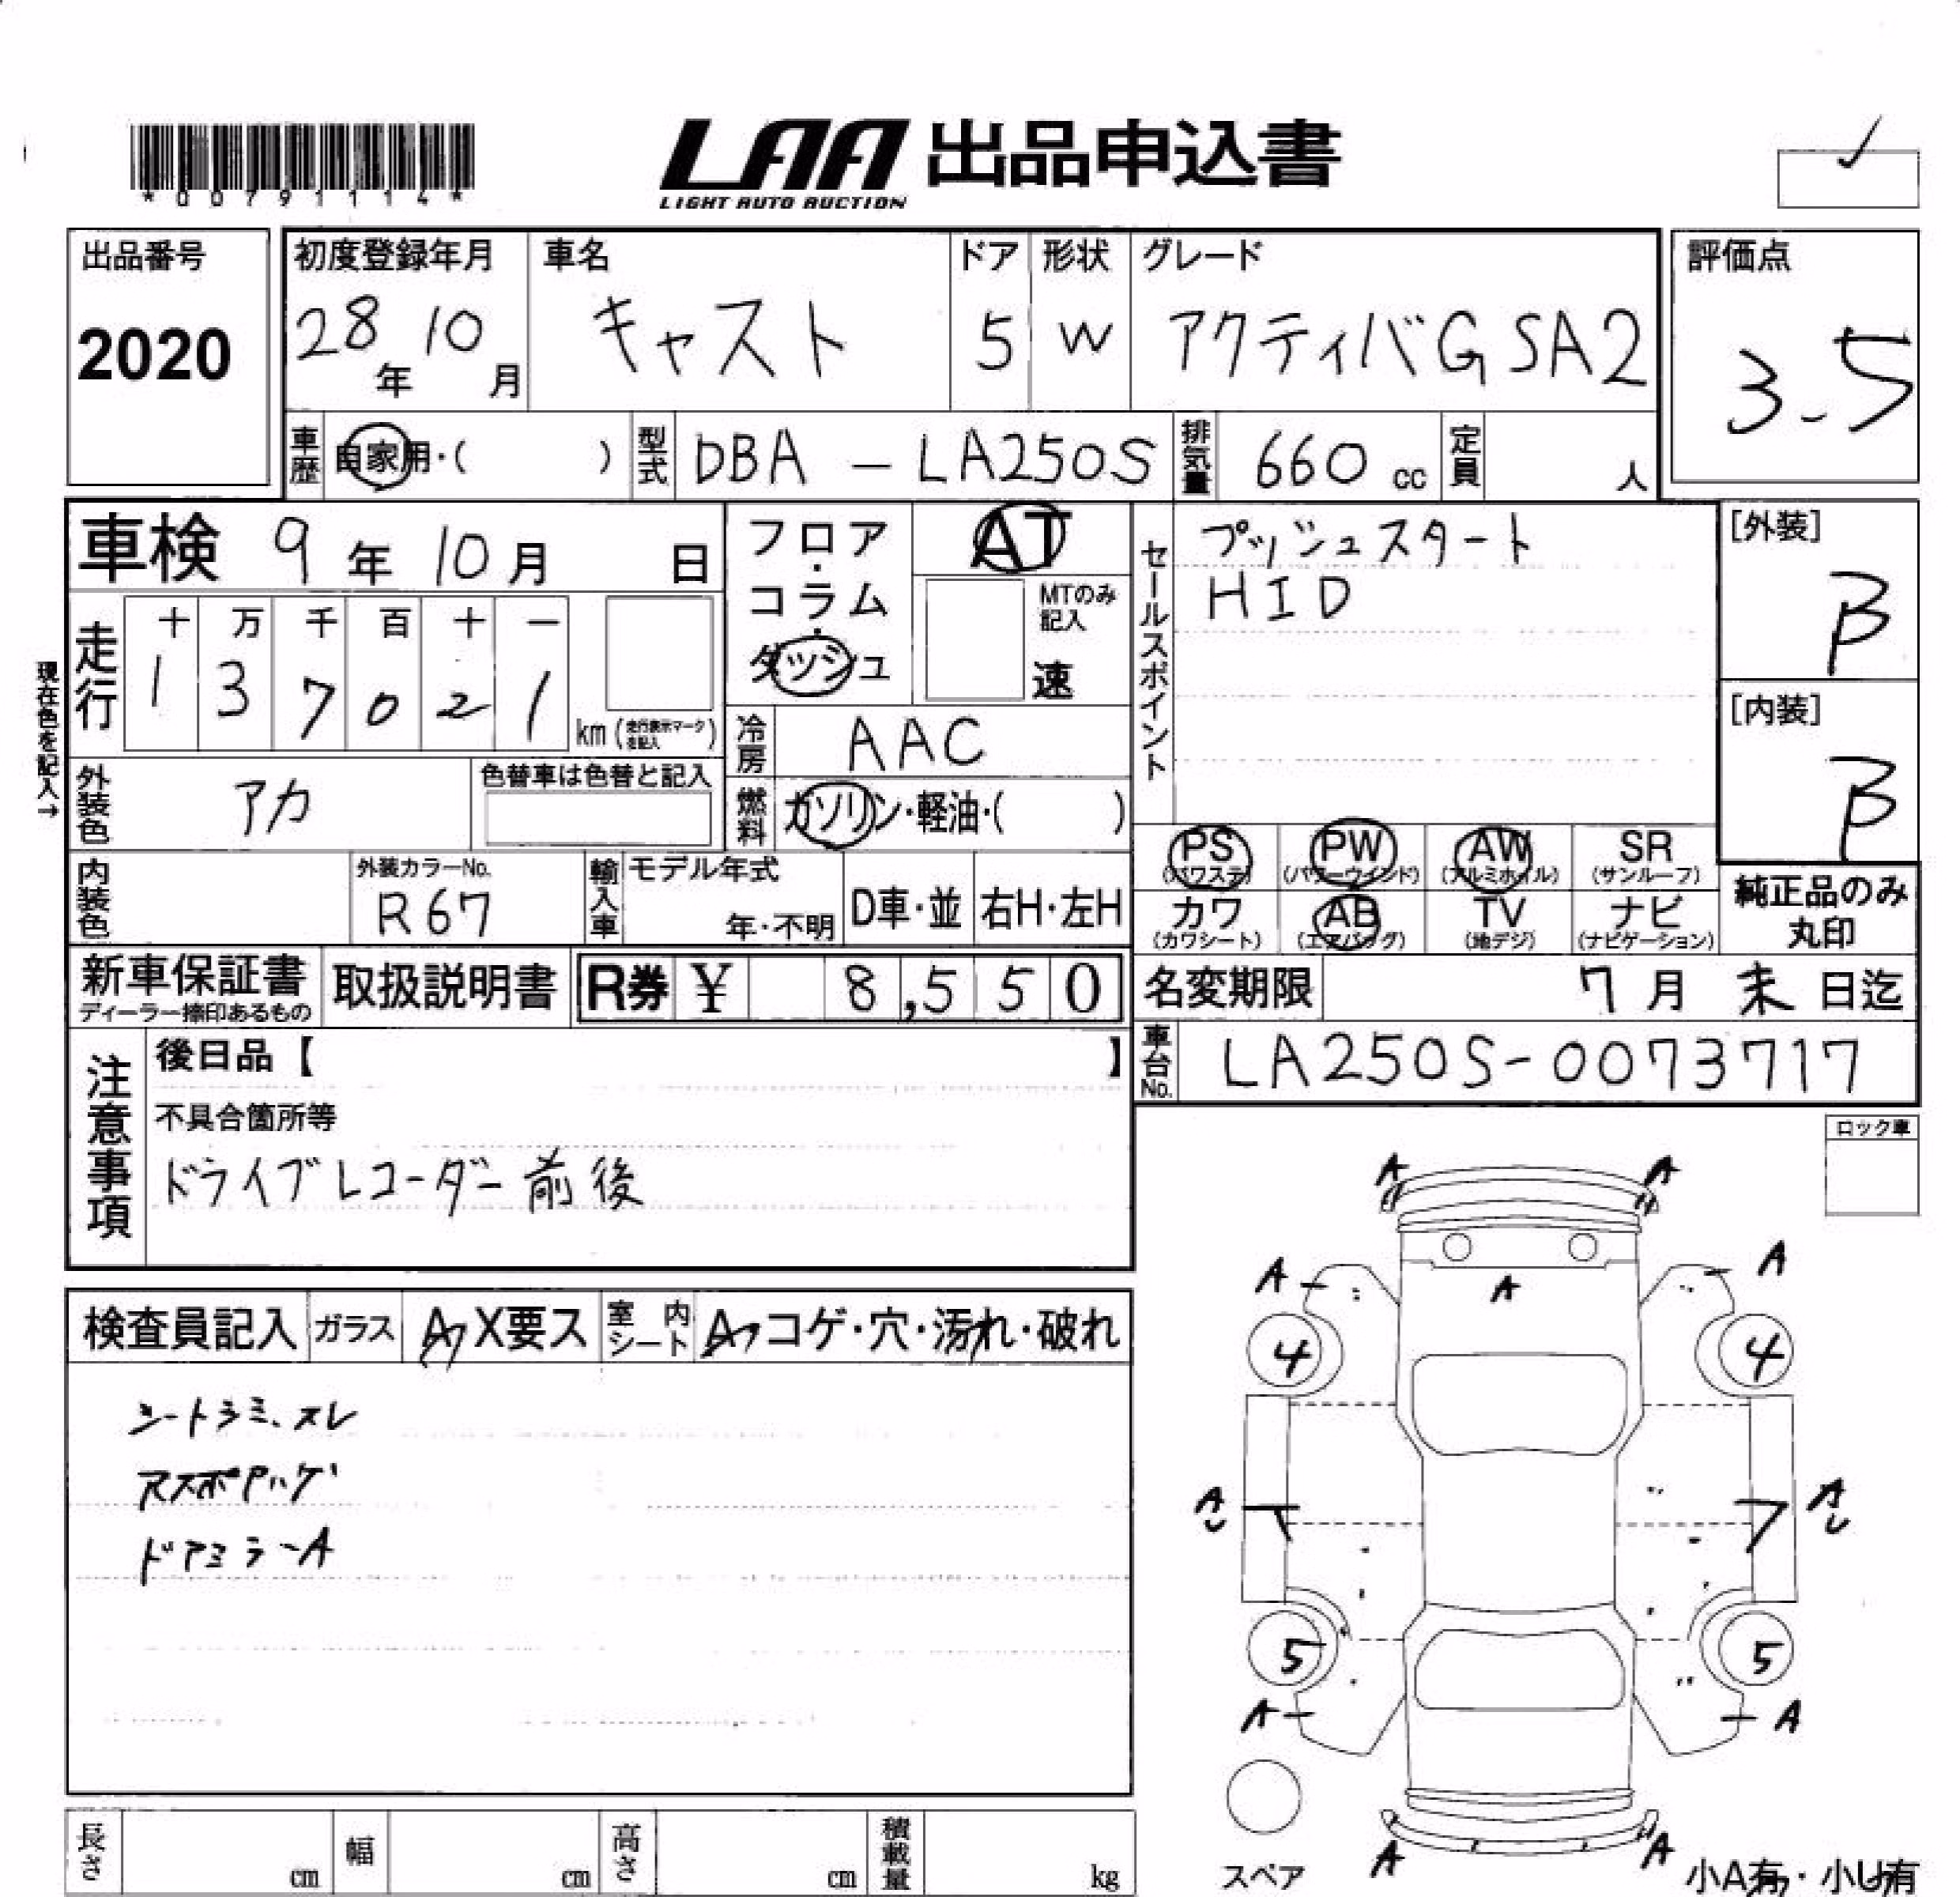 *0079111４*
LAA 出品申込書
LIGHT AUTO AUCTION
出品番号
2020
初度登録年月
28年 10月
車名
キャスト
ドア
5
形状
W
グレード
アクティバG SA2
評価点
3.5
車歴 自家用・( )
型式 DBA - LA250S
排気量 660 cc
定員 人
車検 9年 10月 日
走行
十 万 千 百 十 一
1 3 7 0 2 1
km (走行表示マークを記入)
現在色を記入→
フロア・コラム・ダッシュ
AT
MTのみ記入
速
冷房 AAC
燃料 ガソリン・軽油・( )
外装色 アカ
色替車は色替と記入
内装色
外装カラーNo.
R67
輸入車
モデル年式
年・不明
D車・並
右H・左H
セールスポイント
プッシュスタート
HID
[外装]
B
[内装]
B
PS (パワステ)
PW (パワーウインド)
AW (アルミホイル)
SR (サンルーフ)
カワ (カワシート)
AB (エアバッグ)
TV (地デジ)
ナビ (ナビゲーション)
純正品のみ丸印
新車保証書
ディーラー捺印あるもの
取扱説明書
R券 ¥ 8,550
名変期限 7月 末日迄
車台No. LA250S-0073717
注意事項
後日品【 】
不具合箇所等
ドライブレコーダー前後
ロック車
検査員記入
ガラス A X要ス
室内シート A コゲ・穴・汚れ・破れ
シートシミ、スレ
ドアミラーA
A A
A A A
4 4
A A
5 5
A A
A A
スペア
小A有・小U有
長さ cm
幅 cm
高さ cm
積載量 kg